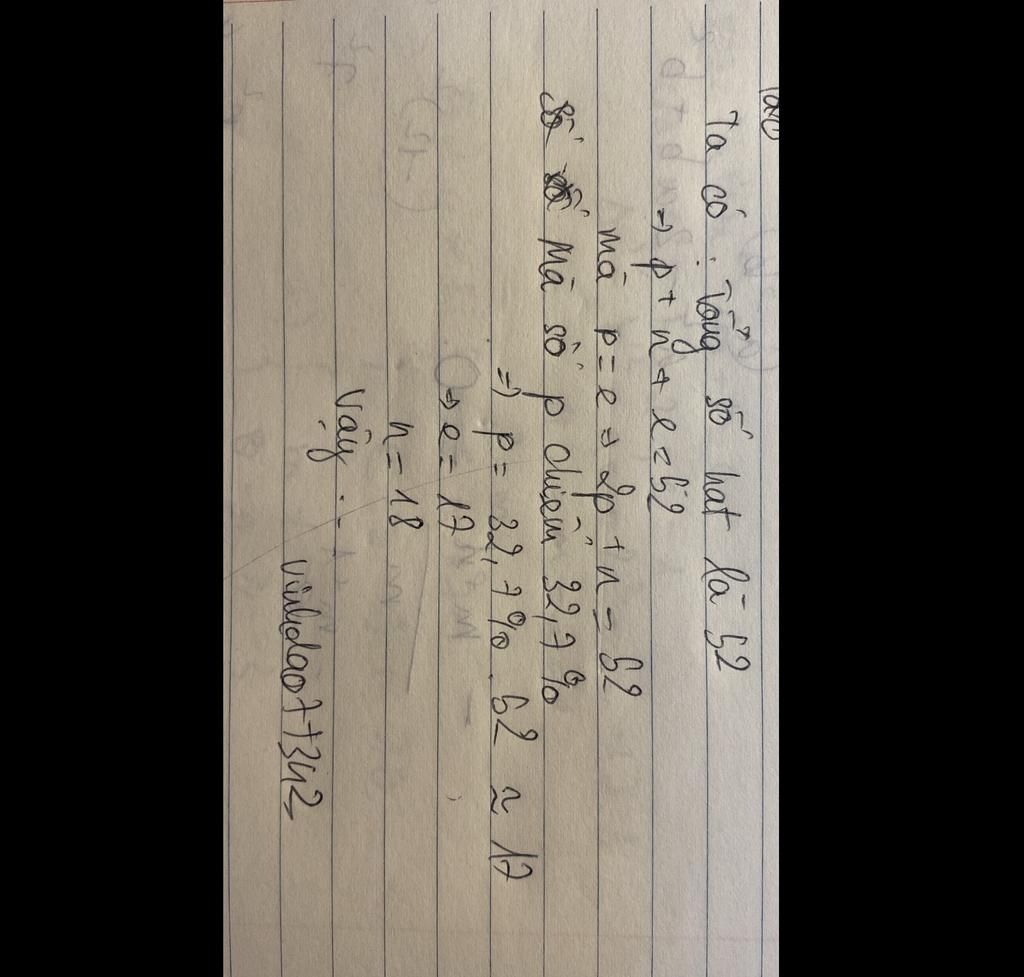 Ta có : Tổng số hạt là 52
⇒ p + n + e = 52
mà p = e ⇒ 2p + n = 52
Mà số p chiếm 32,7%
⇒ p = 32,7% . 52 ≈ 17
⇒ e = 17
n = 18
Vậy ...
vinhdao77342